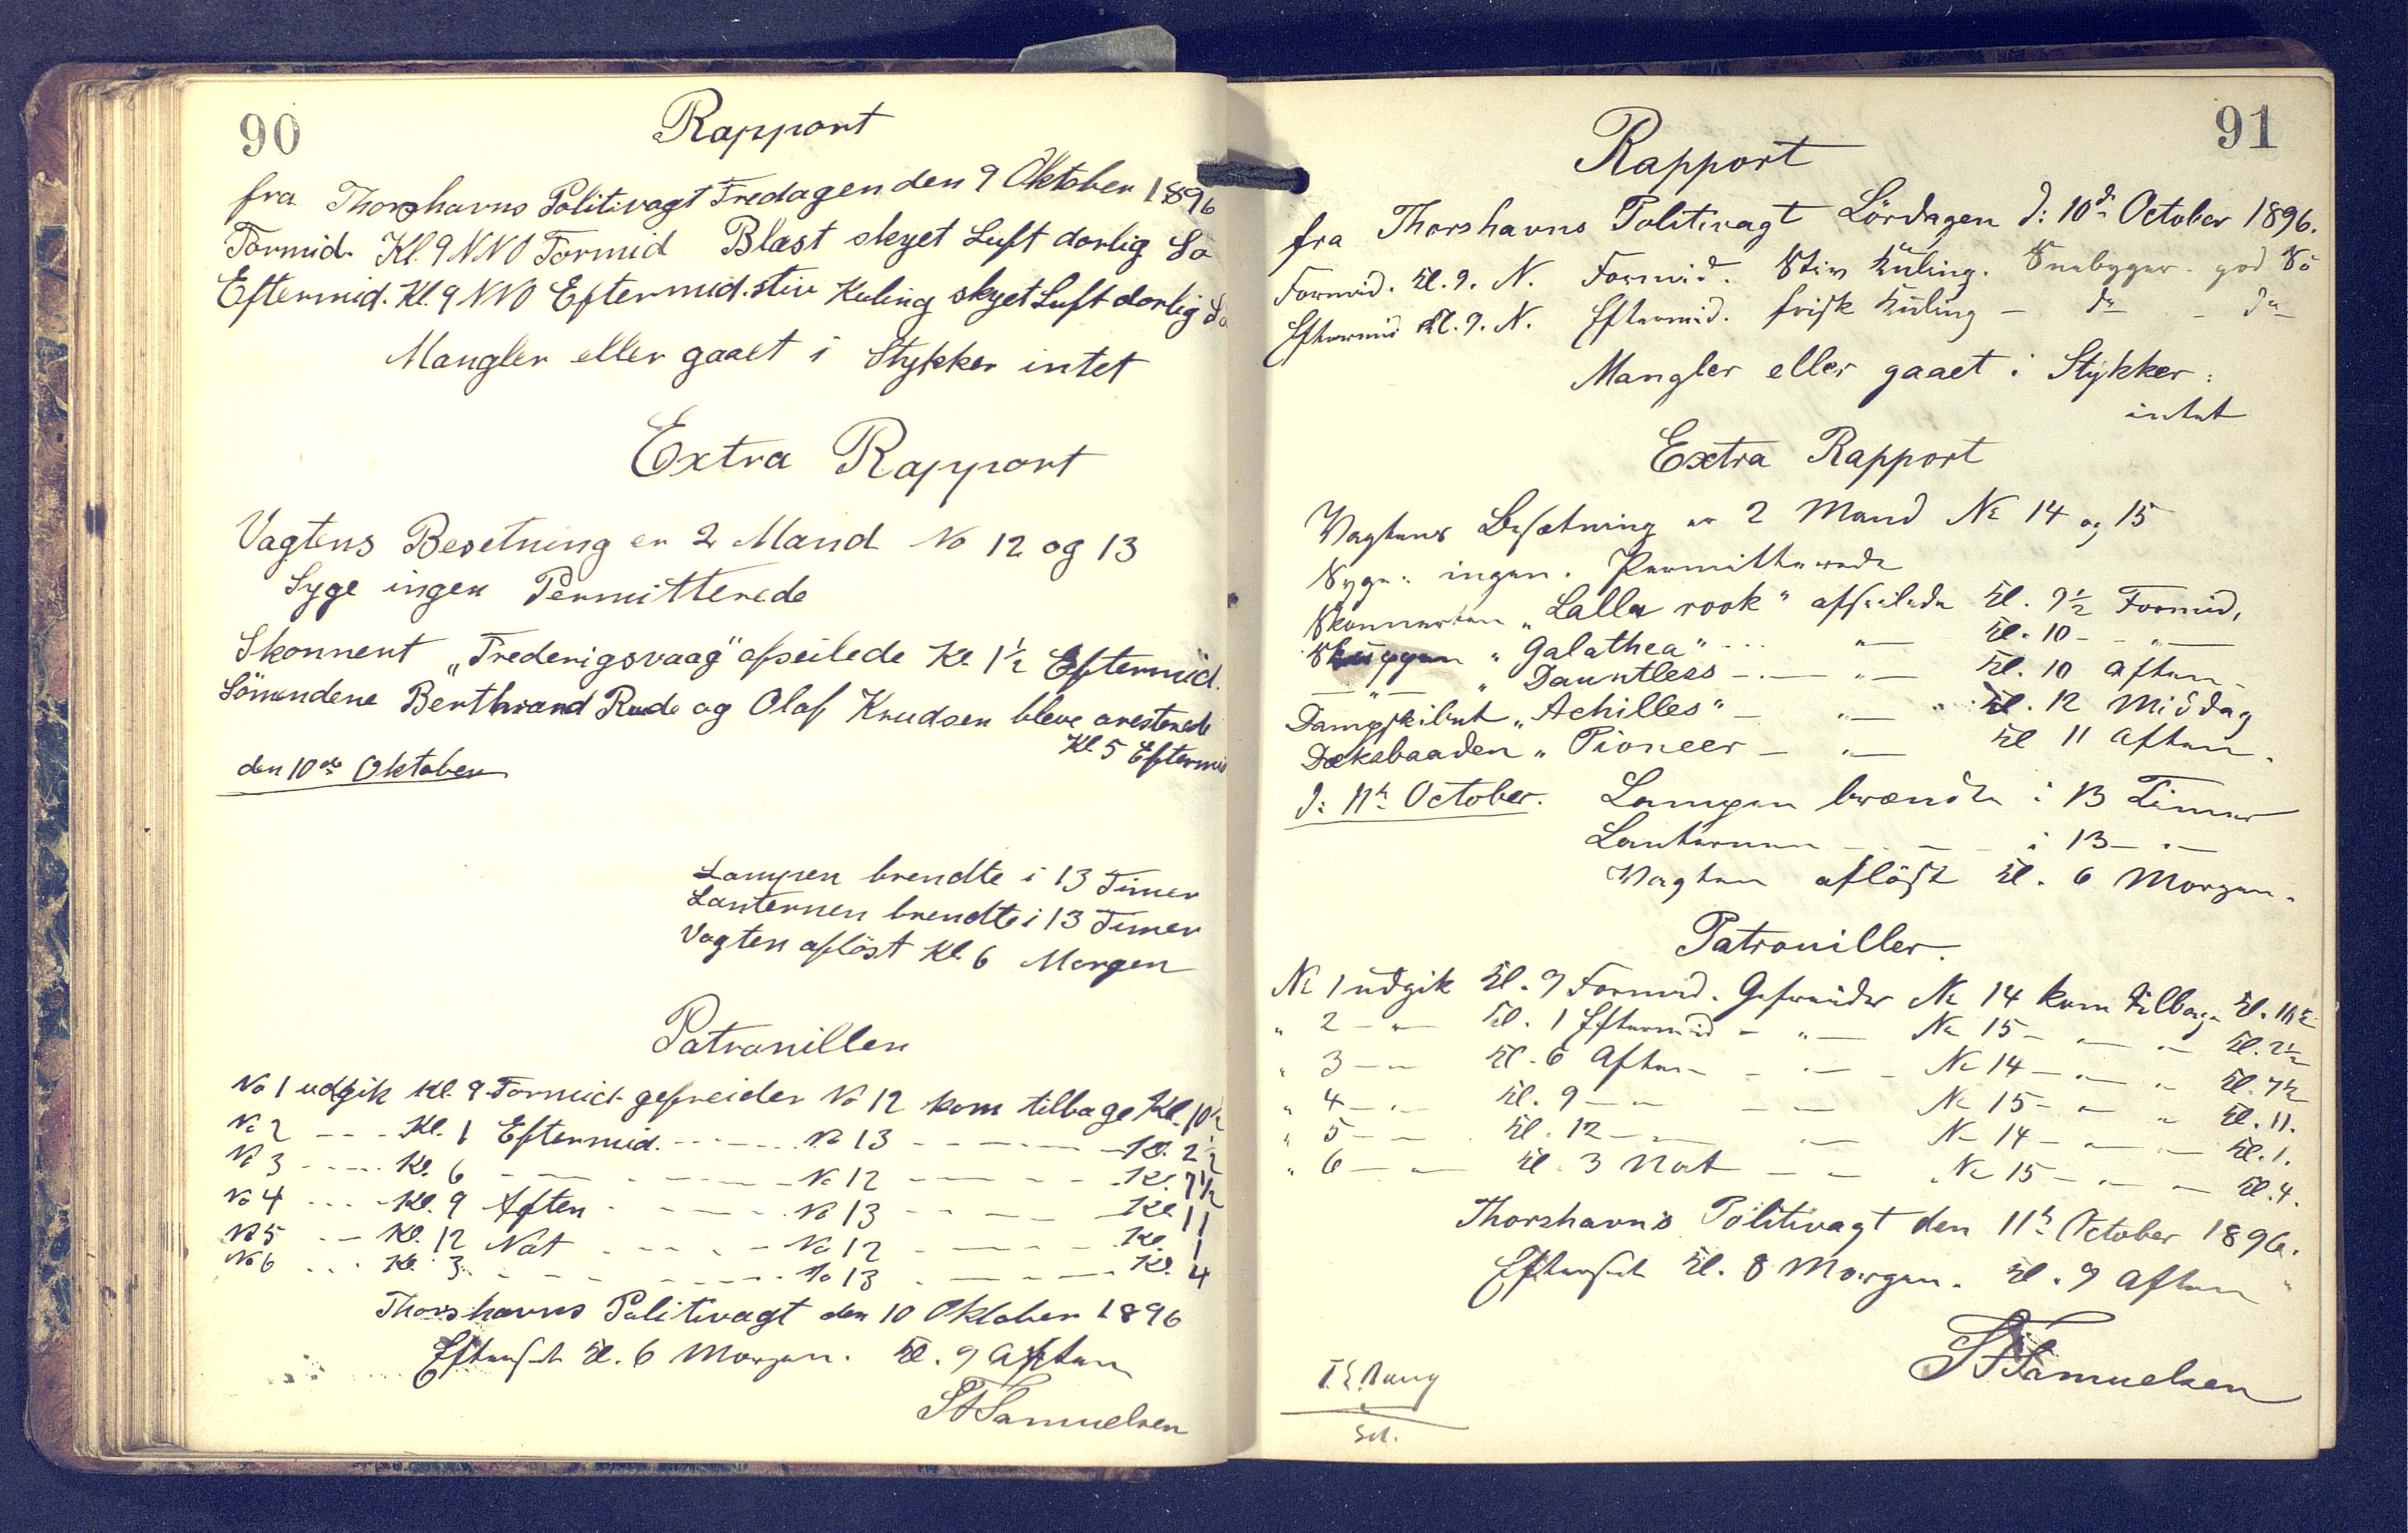 90
Rapport
fra Thorshavns Politivagt Fredagen den 9 Oktober 1896
Formid. Kl. 9 NNO Formid Blæst skyet Luft dorlig So
Eftermid. Kl. 9 NNO Eftermid. stiv Kuling skyet Luft dorlig So
Mangler eller gaaet i Stykker intet
Extra Rapport
Vagtens Besetning er 2 Mand No 12 og 13
Syge ingen Permitterede
Skonnert „Frederigsvaag" afseilede Kl. 1½ Eftermid.
Sömendene Berthrand Rude og Olaf Knudsen bleve aresterede
Kl. 5 Eftermid
den 10de Oktober
Lampen brendte i 13 Timer
Lanternen brendte i 13 Timer
Vagten aflöst Kl. 6 Morgen
Patrouiller
No 1 udgik Kl. 9 Formid. gefreider No 12 kom tilbage Kl. 10½
No 2 - - - Kl. 1 Eftermid. - - - No 13 - - - Kl. 2½
No 3 - - - Kl. 6 - - - No 12 - - - Kl. 7½
No 4 - - - Kl. 9 Aften - - - No 13 - - - Kl. 11
No 5 - - Kl. 12 Nat - - - No 12 - - - Kl. 1
No 6 - - - Kl. 3 - - - No 13 - - - Kl. 4
Thorshavns Politivagt den 10 Oktober 1896
Efterset Kl. 6 Morgen. Kl. 9 Aften
Samuelsen
91
Rapport
fra Thorshavns Politivagt Lördagen d: 10de October 1896.
Formid. Kl. 9. N. Formid. Stiv Kuling. Snebyger. god Sö
Eftermid Kl. 9. N. Eftermid. frisk Kuling - do - do
Mangler eller gaaet i Stykker:
intet
Extra Rapport
Vagtens Besætning er 2 Mand No 14 og 15
Syge: ingen. Permitterede
Skonnerten „Lalla rook" afseilede Kl. 9½ Formid.
„Galathea" - - - „ - Kl. 10 - „ -
- „ - „Dauntless - - „ - Kl. 10 Aften -
Dampskibet „Achilles" - „ - Kl. 12 Middag
Dæksbaaden „Pioneer - „ - Kl 11 Aften.
d: 11te October. Lampen brændte i 13 Timer
Lanternen - - - i 13 - „ -
Vagten aflöst Kl. 6 Morgen.
Patrouiller.
No 1 udgik Kl. 9 Formid. Gefreider No 14 kom tilbage Kl. 10½
„ 2 - „ - Kl. 1 Eftermid - „ - No 15 - „ - „ Kl. 2½
„ 3 - „ Kl. 6 Aften - - „ - No 14 - „ - „ Kl. 7½
„ 4 - „ - Kl. 9 - „ - - „ - No 15 - „ - „ Kl. 11.
„ 5 - „ Kl. 12 - „ - - „ - No 14 - „ - „ Kl. 1.
„ 6 - „ - Kl. 3 Nat - „ - No 15 - „ - „ Kl. 4.
Thorshavns Politivagt den 11te October 1896.
Efterset Kl. 8 Morgen. Kl. 9 Aften
Samuelsen